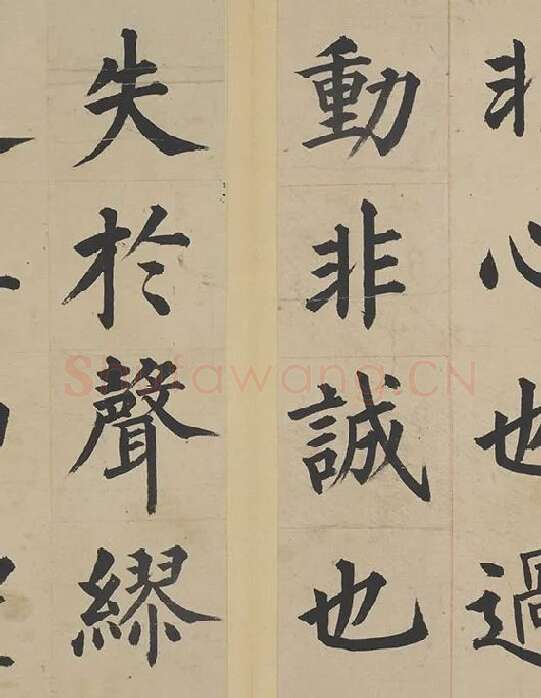 非心也過
動非誠也
失於聲繆
Shufawang.CN